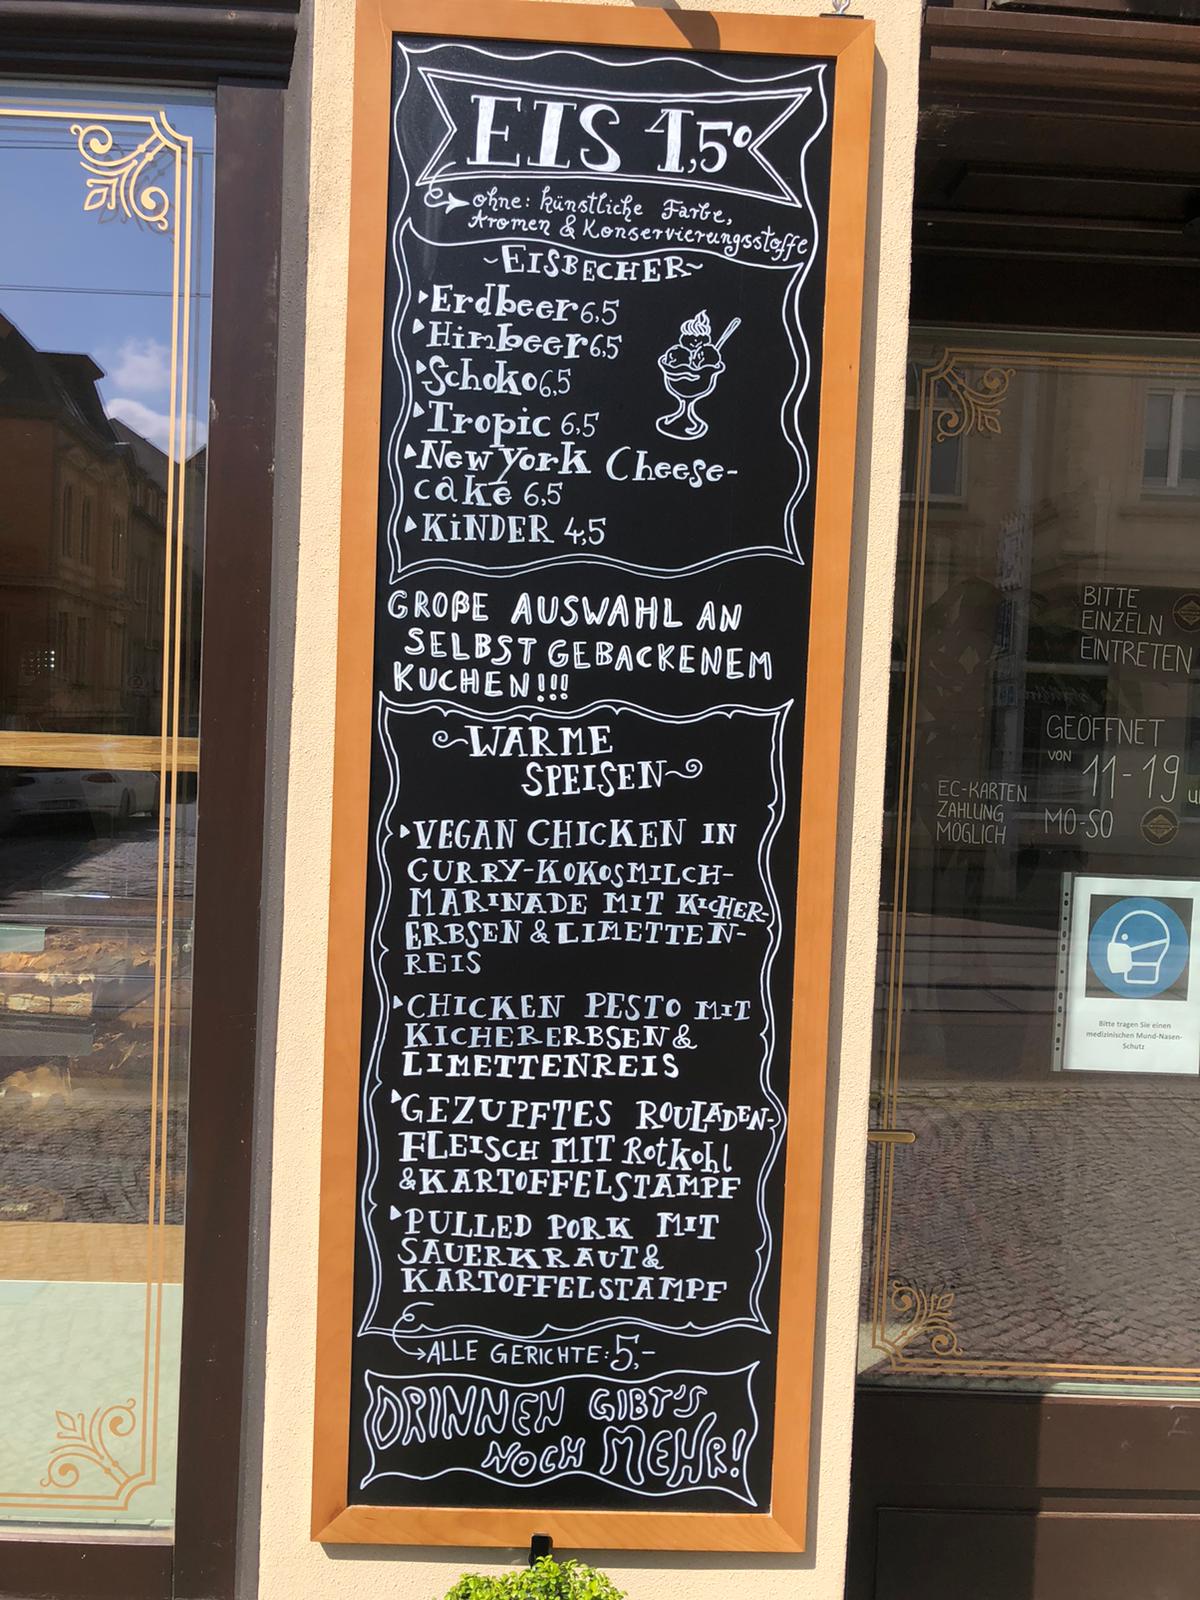 EIS 1,50
ohne: künstliche Farbe,
Aromen & Konservierungsstoffe
~EISBECHER~
Erdbeer 6,5
Himbeer 6,5
Schoko 6,5
Tropic 6,5
New York Cheese-
cake 6,5
KiNDER 4,5
GROßE AUSWAHL AN
SELBST GEBACKENEM
KUCHEN!!!
WARME
SPEISEN
VEGAN CHICKEN IN
CURRY-KOKOSMILCH-
MARINADE MIT KICHER-
ERBSEN & LIMETTEN-
REIS
CHICKEN PESTO MIT
KICHERERBSEN &
LIMETTENREIS
GEZUPFTES ROULADEN-
FLEISCH MIT Rotkohl
& KARTOFFELSTAMPF
PULLED PORK MIT
SAUERKRAUT &
KARTOFFELSTAMPF
ALLE GERICHTE: 5,-
DRINNEN GIBT'S
NOCH MEHR!
BITTE
EINZELN
EINTRETEN
GEÖFFNET
VON 11-19
MO-SO
EC-KARTEN
ZAHLUNG
MÖGLICH
Bitte tragen Sie einen
medizinischen Mund-Nasen-
Schutz